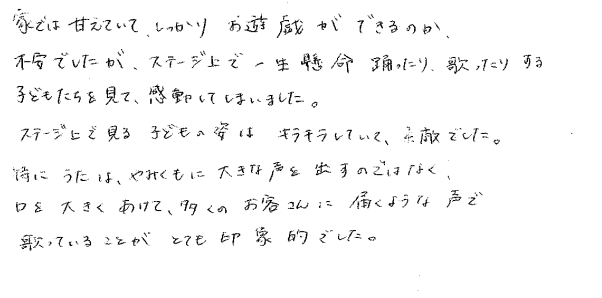 家では甘えていて、しっかり お遊戯ができるのか、
不安でしたが、ステージ上で一生懸命 踊ったり、歌ったりする
子どもたちを見て、感動してしまいました。
ステージ上で見る 子どもの姿は キラキラしていて、素敵でした。
特に うたは、やみくもに 大きな声を 出すのではなく、
口を 大きく あけて、多くの お客さんに 届くような 声で
歌っていることが とても 印象的でした。